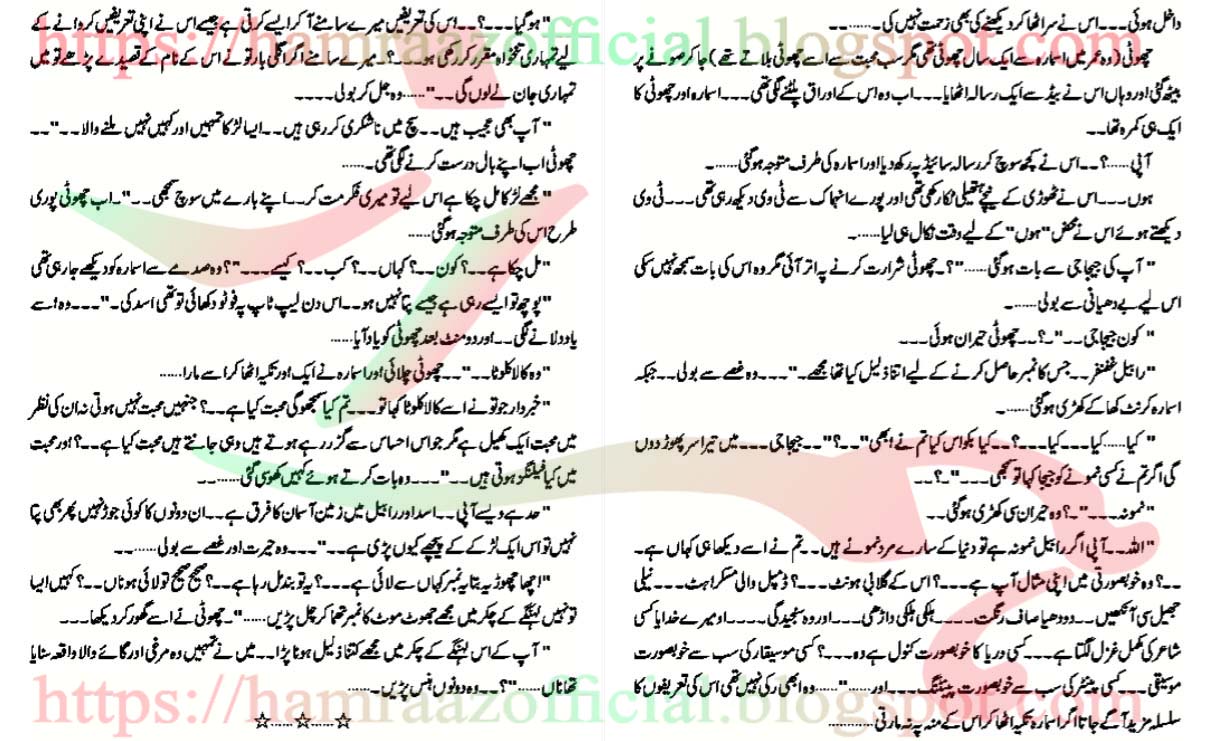 داخل ہوئی۔۔۔ اس نے سر اٹھا کر دیکھنے کی بھی زحمت نہیں کی۔........
چھوٹی (وہ عمر میں اسمارہ سے ایک سال چھوٹی تھی مگر سب محبت سے اسے چھوٹی بلاتے تھے) جا کر صوفے پر
بیٹھ گئی اور وہاں اس نے بیڈ سے ایک رسالہ اٹھایا۔۔۔ اب وہ اس کے اوراق پلٹنے لگی تھی۔۔۔ اسمارہ اور چھوٹی کا
ایک ہی کمرہ تھا۔۔
آپی......؟۔۔ اس نے کچھ سوچ کر رسالہ سائیڈ پہ رکھ دیا اور اسمارہ کی طرف متوجہ ہوگئی......۔
ہوں۔۔۔ اس نے ٹھوڑی کے نیچے ہتھیلی ٹکا رکھی تھی اور پورے انہماک سے ٹی وی دیکھ رہی تھی۔۔۔ ٹی وی
دیکھتے ہوئے اس نے محض "ہوں" کے لیے وقت نکال ہی لیا......۔
" آپ کی جیجا جی سے بات ہوگئی......"؟۔ چھوٹی شرارت کرنے پہ اتر آئی مگر وہ اس کی بات سمجھ نہیں سکی
اس لیے بے دھیانی سے بولی......۔
" کون جیجا جی۔۔"۔؟۔۔ چھوٹی حیران ہوئی۔۔۔
" رابیل غضنفر۔۔ جس کا نمبر حاصل کرنے کے لیے اتنا ذلیل کیا تھا مجھے۔"۔۔۔ وہ غصے سے بولی۔۔ جبکہ
اسمارہ کرنٹ کھا کے کھڑی ہوگئی......۔
" کیا......کیا۔۔۔ کیا۔۔۔؟۔۔ کیا بکواس کیا تم نے ابھی"۔۔؟"۔۔ جیجا جی۔۔۔ میں تیرا سر پھوڑ دوں
گی اگر تم نے کسی نمونے کو جیجا کہا تو سمجھی۔۔۔"۔؟۔۔
" نمونہ۔۔۔"۔؟ وہ حیران سی کھڑی ہوگئی۔۔
" اللہ۔۔ آپی اگر رابیل نمونہ ہے تو دنیا کے سارے مرد نمونے ہیں۔۔ تم نے اسے دیکھا ہی کہاں ہے۔
۔۔؟ وہ خوبصورتی میں اپنی مثال آپ ہے۔۔۔؟ اس کے گلابی ہونٹ۔۔۔؟ ڈمپل والی مسکراہٹ۔۔۔ نیلی
جھیل سی آنکھیں۔۔ دودھیا صاف رنگت۔۔۔۔ ہلکی ہلکی داڑھی۔۔۔ اور وہ سنجیدگی۔۔۔۔ او میرے خدایا کسی
شاعر کی مکمل غزل لگتا ہے۔۔۔ کسی دریا کا خوبصورت کنول ہے وہ۔۔۔؟ کسی موسیقار کی سب سے خوبصورت
موسیقی۔۔۔ کسی پینٹر کی سب سے خوبصورت پینٹنگ۔۔۔ اور......"...... وہ ابھی رکی نہیں تھی اس کی تعریفوں کا
سلسلہ مزید آگے جاتا اگر اسمارہ تکیہ اٹھا کر اس کے منہ پہ نہ مارتی............
" ہوگیا۔۔۔؟۔۔ اس کی تعریفیں میرے سامنے آ کر ایسے کرتی ہے جیسے اس نے اپنی تعریفیں کروانے کے
لیے تمہاری تنخواہ مقرر کر رکھی ہو۔۔۔؟۔ میرے سامنے اگر اگلی بار تو نے اس کے نام کے قصیدے پڑھے تو میں
تمہاری جان لے لوں گی۔۔"...... وہ جل کر بولی۔۔۔۔
" آپ بھی عجیب ہیں۔۔ سچ میں ناشکری کر رہی ہیں۔۔ ایسا لڑکا تمہیں اور کہیں نہیں ملنے والا۔۔"۔۔
چھوٹی اب اپنے بال درست کرنے لگی تھی۔......
" مجھے لڑکا مل چکا ہے اس لیے تو میری فکر مت کر۔۔ اپنے بارے میں سوچ سمجھی۔۔"۔ اب چھوٹی پوری
طرح اس کی طرف متوجہ ہوگئی......
" مل چکا ہے۔۔؟ کون۔۔؟ کہاں۔۔؟ کب۔۔؟ کیسے۔۔۔"؟ وہ صدمے سے اسمارہ کو دیکھے جا رہی تھی
" پوچھ تو ایسے رہی ہے جیسے پتا نہیں ہو۔۔ اس دن لیپ ٹاپ پہ فوٹو دکھائی تو تھی اسد کی۔"۔۔۔ وہ اسے
یاد دلانے لگی۔۔ اور دو منٹ بعد چھوٹی کو یاد آیا......
" وہ کالا کلوٹا۔۔"۔۔ چھوٹی چلائی اور اسمارہ نے ایک اور تکیہ اٹھا کر اسے مارا......
" خبردار جو تو نے اسے کالا کلوٹا کہا تو۔۔۔ تم کیا سمجھو گی محبت کیا ہے۔۔؟ جنہیں محبت نہیں ہوتی نہ ان کی نظر
میں محبت ایک کھیل ہے مگر جو اس احساس سے گزر رہے ہوتے ہیں وہی جانتے ہیں محبت کیا ہے۔۔؟ اور محبت
میں کیا فیلنگز ہوتی ہیں۔۔"۔۔۔ وہ بات کرتے ہوئے کہیں کھو سی گئی......۔۔
" حد ہے ویسے آپی۔۔ اسد اور رابیل میں زمین آسمان کا فرق ہے۔۔ ان دونوں کا کوئی جوڑ نہیں پھر بھی پتا
نہیں تو اس ایک لڑکے کے پیچھے کیوں پڑی ہے۔۔"۔۔۔ وہ حیرت اور غصے سے بولی......۔۔
" اچھا چھوڑ یہ بتا یہ نمبر کہاں سے لائی ہے۔۔۔؟ یہ تو بند مل رہا ہے۔۔؟ صحیح صحیح تو لائی ہو ناں۔۔؟ کہیں ایسا
تو نہیں لہنگے کے چکر میں مجھے جھوٹ موٹ کا نمبر تھما کر چل پڑیں......"۔ چھوٹی نے اسے گھور کر دیکھا۔۔۔
" آپ کے اس لہنگے کے چکر میں مجھے کتنا ذلیل ہونا پڑا۔۔ میں نے تمہیں وہ مرغی اور گائے والا واقعہ سنایا
تھا ناں......"؟۔۔ وہ دونوں ہنس پڑیں۔......
☆......☆......☆
https://hamraazofficial.blogspot.com
https://hamraazofficial.blogspot.com